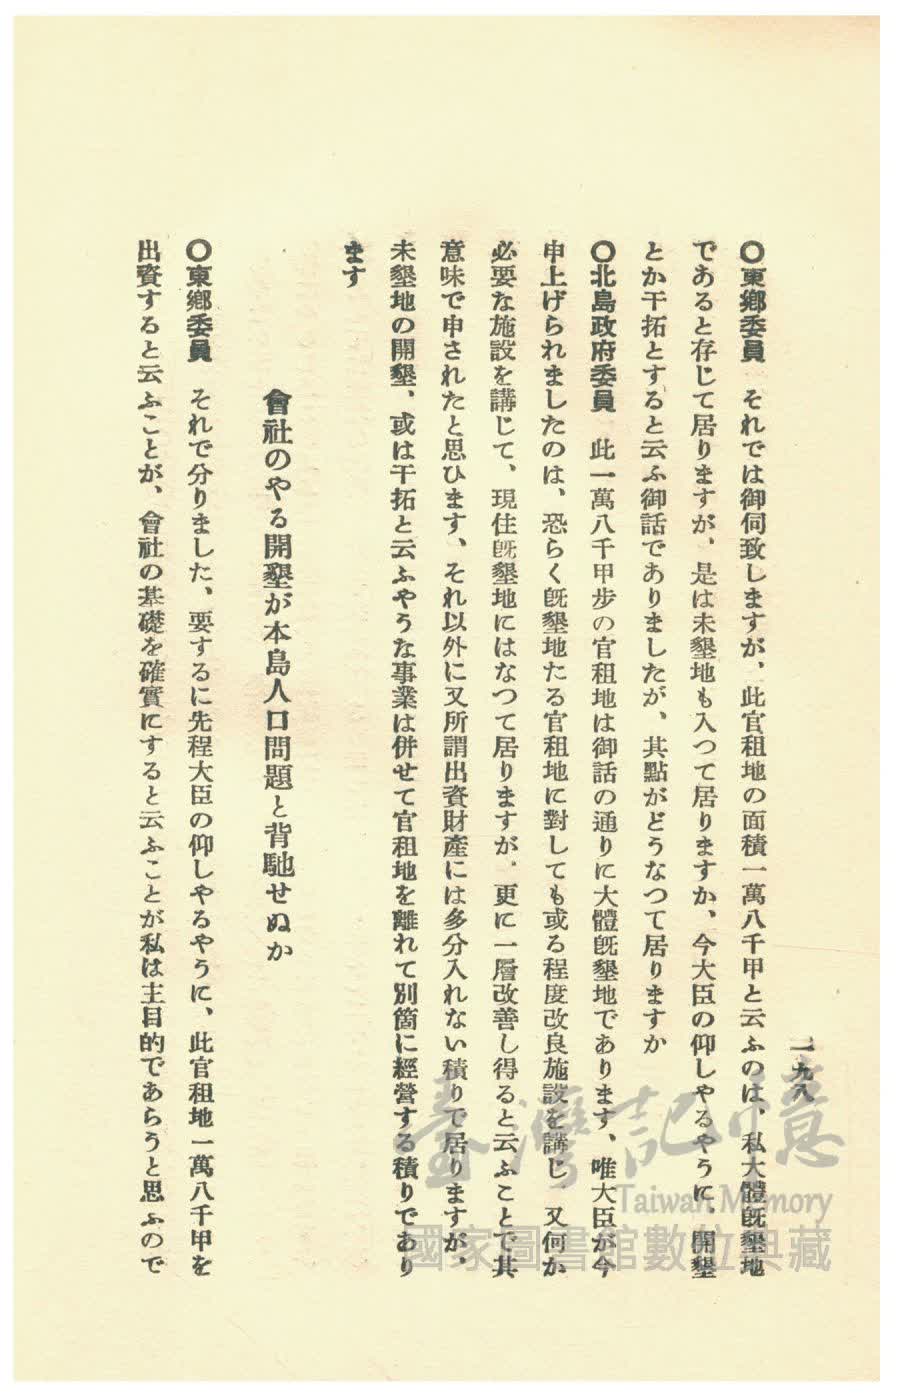 一九八
〇東鄕委員　それでは御伺致しますが、此官租地の面積一萬八千甲と云ふのは、私大體旣墾地
であると存じて居りますが、是は未墾地も入つて居りますか、今大臣の仰しやるやうに、開墾
とか干拓とすると云ふ御話でありましたが、其點がどうなつて居りますか
〇北島政府委員　此一萬八千甲步の官租地は御話の通りに大體旣墾地であります、唯大臣が今
申上げられましたのは、恐らく旣墾地たる官租地に對しても或る程度改良施設を講じ、又何か
必要な施設を講じて、現住旣墾地にはなつて居りますが、更に一層改善し得ると云ふことで其
意味で申されたと思ひます、それ以外に又所謂出資財產には多分入れない積りで居りますが、
未墾地の開墾、或は干拓と云ふやうな事業は併せて官租地を離れて別箇に經營する積りであり
ます
會社のやる開墾が本島人口問題と背馳せぬか
〇東鄕委員　それで分りました、要するに先程大臣の仰しやるやうに、此官租地一萬八千甲を
出資すると云ふことが、會社の基礎を確實にすると云ふことが私は主目的であらうと思ふので
臺灣記憶
Taiwan Memory
國家圖書館數位典藏